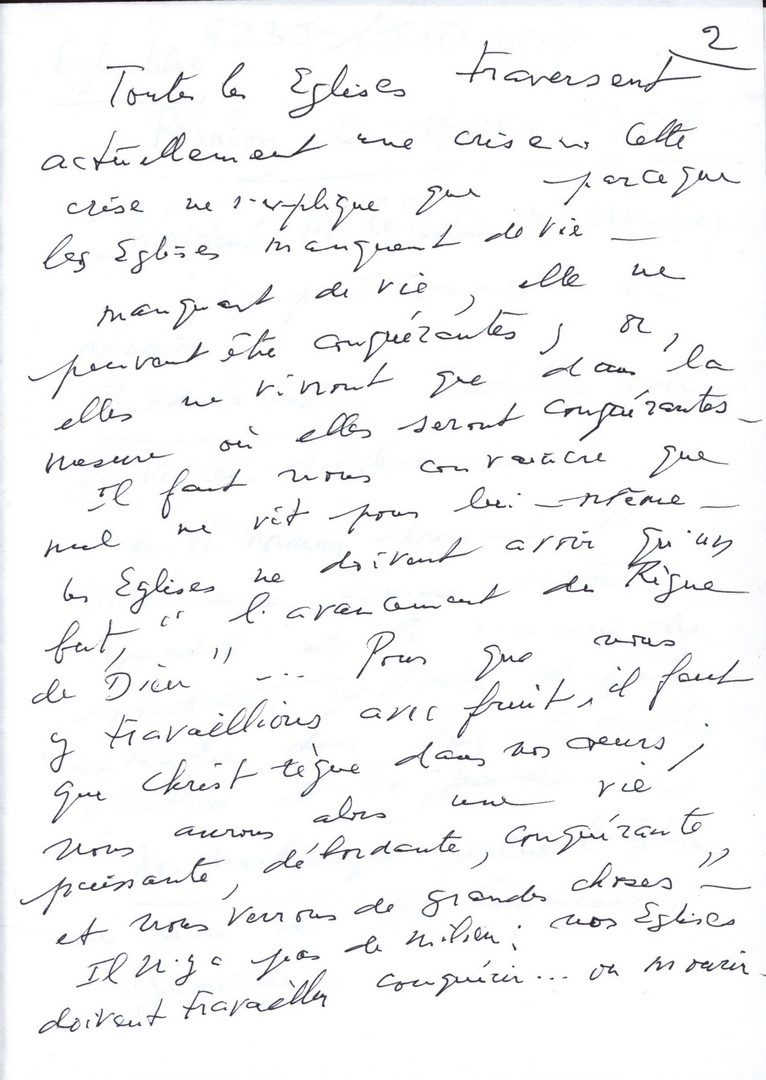 2
Toutes les Eglises traversent
actuellement une crise. Cette
crise ne s'explique que parce que
les Eglises manquent de vie —
manquant de vie, elle ne
peuvent être conquérantes ; or,
elles ne vivront que dans la
mesure où elles seront conquérantes —
Il faut nous convaincre que
nul ne vit pour lui-même —
les Eglises ne doivent avoir qu'un
but, " l'avancement du Règne
de Dieu " ... Pour que nous
y travaillions avec fruit, il faut
que Christ règne dans nos cœurs ;
nous aurons alors une vie
puissante, débordante, conquérante,
et nous verrons de grandes choses " —
Il n'y a pas de milieu : nos Eglises
doivent travailler conquérir... ou mourir.